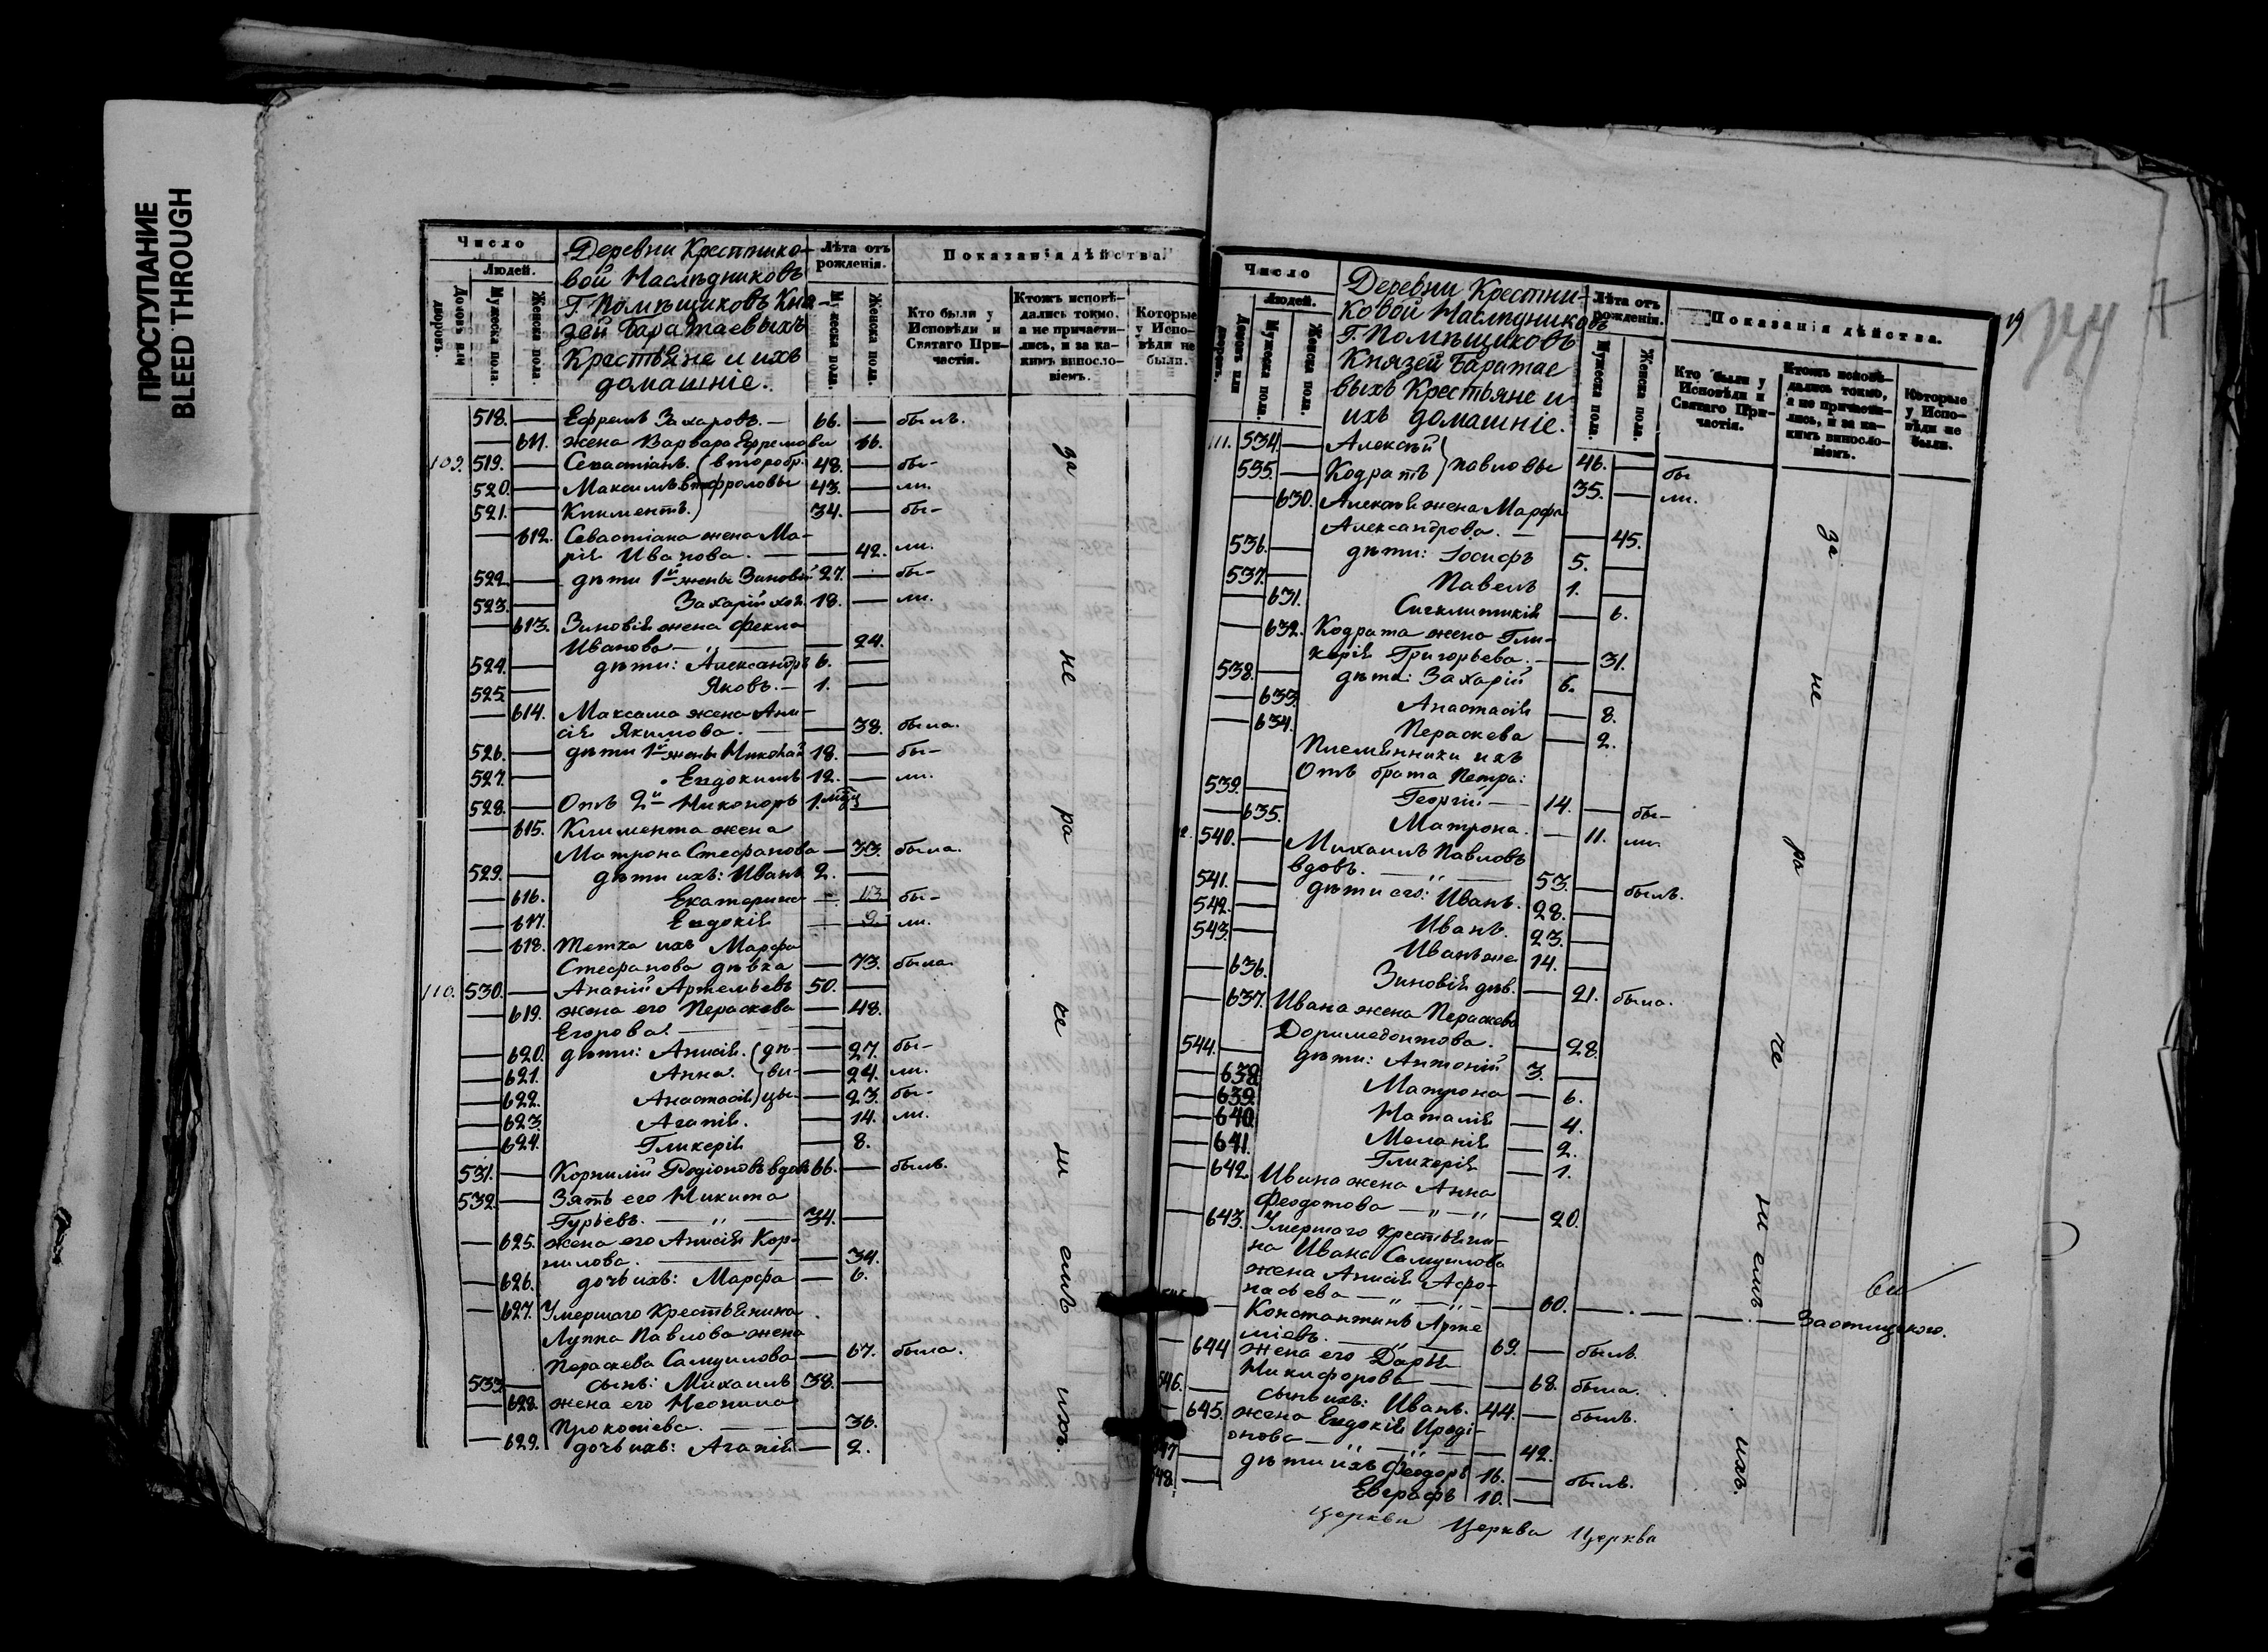 ПРОСТУПАНИЕ
BLEED THROUGH
Число
Людей.
Домовъ или дворовъ.
Мужеска пола.
Женска пола.
Деревни Крестнико-
вой Наслѣдниковъ
Г. Помѣщиковъ Кня-
зей Баратаевыхъ
Крестьяне и ихъ
домашніе.
Лѣта отъ рожденія.
Мужеска пола.
Женска пола.
Показанія дѣйства.
Кто были у Исповѣди и Святаго При-частія.
Ктожъ исповѣ-дались токмо, а не причасти-лись, и за ка-кимъ винослο-віемъ.
Которые у Испо-вѣди не были.
518. — Ефремъ Захаровъ. — 66. — былъ.
— 611. жена Варвара Ефремова 66.
109. 519. — Севастіанъ. (второбр. 48. — бы-
520. — Максимъ фроловы 43. — ли.
521. — Климентъ.) 34. — бы-
— 612. Севастіана жена Ма-
рія Иванова. — — 42. ли.
522. — дѣти 1й жены Зиновій 27. — бы-
523. — Захарій хол. 18. — ли.
— 613. Зиновія жена Фекла
Иванова — „ — — 24.
524. — дѣти: Александръ 6. —
525. — Яковъ. — 1. —
— 614. Максима жена Ани-
сія Якимова. — — 38. была.
526. — дѣти 1й жены Николай 18. — бы-
527. — Евдокимъ 12. — ли.
528. — Отъ 2й Никоноръ 1. —
— 615. Климента жена
Матрона Стефанова — 33. была.
529. — дѣти ихъ: Иванъ 2. —
— 616. Екатерина — 13 бы-
— 617. Евдокія — 9. ли.
— 618. Тетка ихъ Марфа
Стефанова дѣвка — 73. была.
110. 530. — Ананій Артемьевъ 50. —
— 619. жена его Параскева — 48.
Егорова. —
— 620. дѣти: Анисія. (дѣ- — 27. бы-
— 621. Анна. ви- — 24. ли.
— 622. Анастасія) цы. — 23. бы-
— 623. Агапія. — 14. ли.
— 624. Гликерія — 8.
531. — Корнилій Родіоновъ вдов. 66. — былъ.
532. — Зять его Никита
Гурьевъ. — „ — 34. —
— 625. жена его Анисія Кор-
нилова. — — 34.
— 626. дочь ихъ: Марфа — 6.
— 627. Умершаго Крестьянина
Луппа Павлова жена
Параскева Самуилова — 67. была.
533. — сынъ: Михаилъ 38. —
— 628. жена его Неонила
Прокопіева. — — 36.
— 629. дочь ихъ: Агапія — 2.
за не ра че ни емъ ихъ.
Число
Людей.
Домовъ или дворовъ.
Мужеска пола.
Женска пола.
Деревни Крестни-
ковой Наслѣдниковъ
Г. Помѣщиковъ
Князей Баратае
выхъ Крестьяне и
ихъ домашніе.
Лѣта отъ рожденія.
Мужеска пола.
Женска пола.
Показанія дѣйства.
Кто были у Исповѣди и Святаго При-частія.
Ктожъ исповѣ-дались токмо, а не причасти-лись, и за ка-кимъ винослο-віемъ.
Которые у Испо-вѣди не были.
111. 534. — Алексѣй
535. — Кодратъ } Павловы 46. — бы
35. — ли.
— 630. Алексѣя жена Марфа
Александрова. — — 45.
536. — дѣти: Іосифъ 5. —
537. — Павелъ 1. —
— 631. Сигклитикія — 6.
— 632. Кодрата жена Гли-
керія Григорьева. — — 31.
538. — дѣти: Захарій 6. —
— 633. Анастасія — 8.
— 634. Параскева — 2.
Племянники ихъ
Отъ брата Петра:
539. — Георгій — 14. — бы-
— 635. Матрона. — 11. ли.
540. — Михаилъ Павловъ
вдовъ. — „ — 53. — былъ.
541. — дѣти его: Иванъ. 28. —
542. — Иванъ. 23. —
543. — Иванъ же 14. —
— 636. Зиновія дѣв. — 21. была.
— 637. Ивана жена Параскева
Доримедонтова. — 28.
544. — дѣти: Антоній 3. —
— 638. Матрона — 6.
— 639. Наталія — 4.
— 640. Меланія — 2.
— 641. Гликерія — 1.
— 642. Ивана жена Анна
Феодотова — „ — „ — 20.
— 643. Умершаго крестьяни-
на Ивана Самуилова
жена Анисія Афо-
насьева — „ — „ — 60. — — — За отлучкою.
Константинъ Арте
міевъ. — „ — 69. — былъ.
— 644 жена его Дарья
Никифорова — — 68. была.
546. — сынъ ихъ: Иванъ. 44. — былъ.
— 645. жена Евдокія Ироді-
онова — „ — „ — 42.
547 — дѣти ихъ Феодоръ 16. — былъ.
548. — Евграфъ 10. —
за не ра че ни емъ ихъ.
Церкви Церква Церква